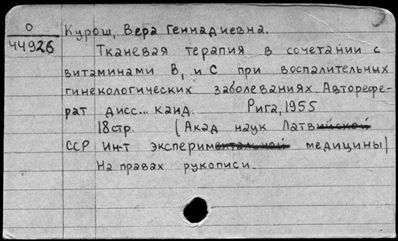 О
44926
Курош, Вера Геннадиевна.
Тканевая терапия в сочетании с
витаминами В₁ и С при воспалительных
гинекологических заболеваниях. Авторефе-
рат дисс... канд. Рига, 1955
18стр. (Акад наук Латвийской
ССР Ин-т экспериментальной медицины)
На правах рукописи.